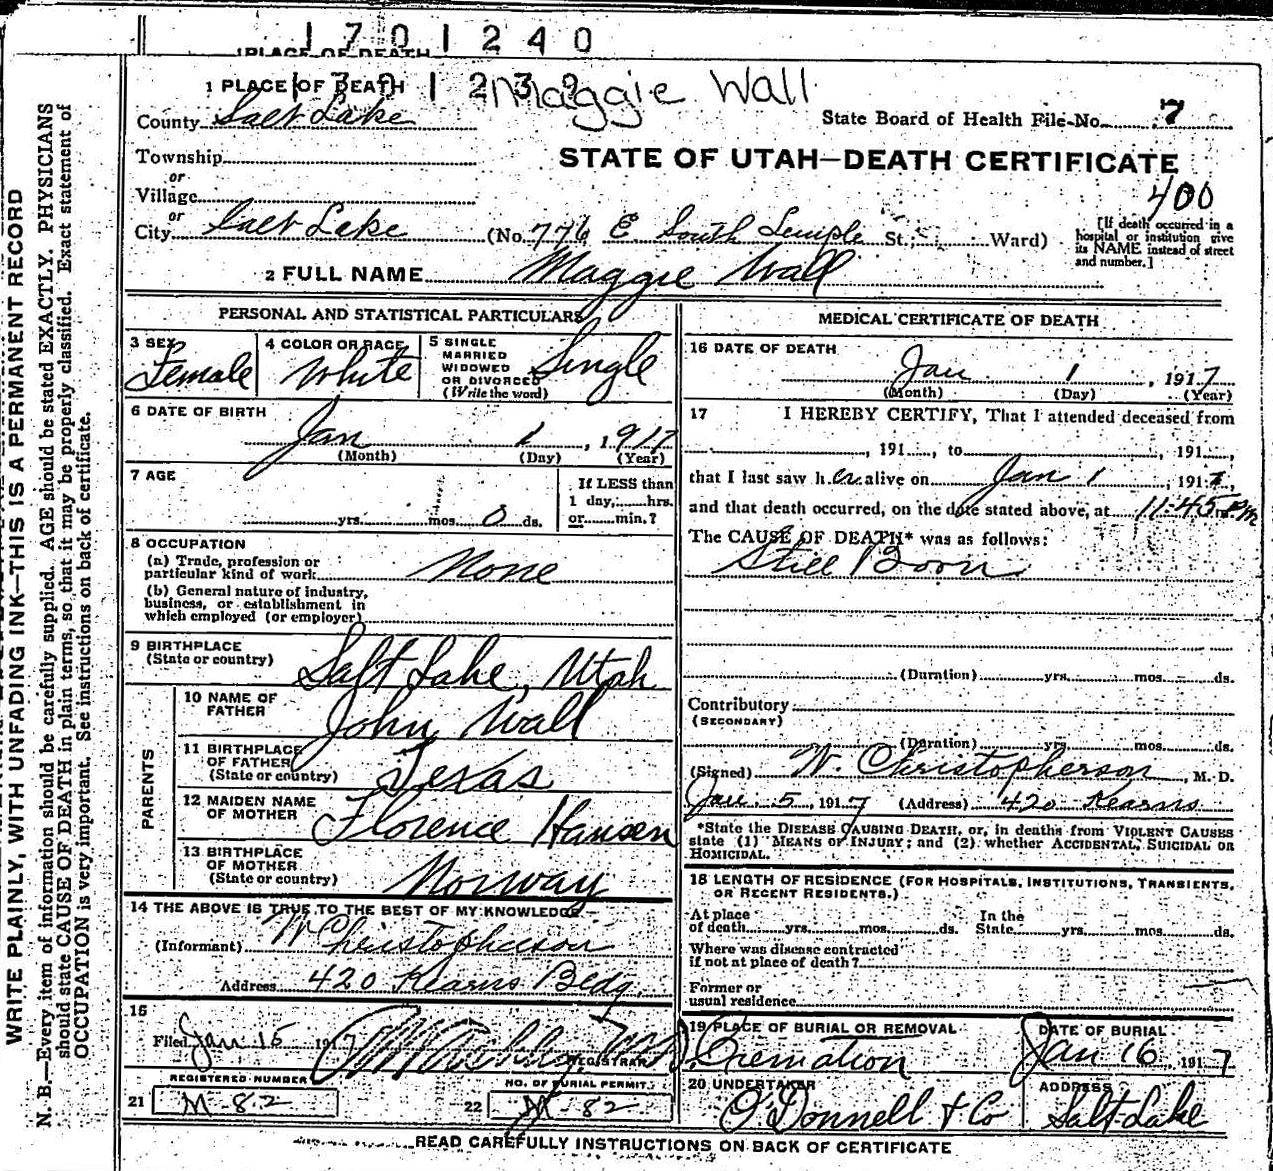 1701240
1 PLACE OF DEATH
Maggie Wall
County Salt Lake
State Board of Health File No. 7
Township
or
STATE OF UTAH—DEATH CERTIFICATE
Village
or
400
City Salt Lake (No. 776 E South Temple St.; Ward)
[If death occurred in a hospital or institution give its NAME instead of street and number.]
2 FULL NAME Maggie Wall
PERSONAL AND STATISTICAL PARTICULARS
3 SEX Female
4 COLOR OR RACE White
5 SINGLE MARRIED WIDOWED OR DIVORCED (Write the word) Single
6 DATE OF BIRTH
Jan 1, 1917
(Month) (Day) (Year)
7 AGE
yrs. mos. 0 ds.
If LESS than
1 day, hrs.
or min.?
8 OCCUPATION
(a) Trade, profession or
particular kind of work None
(b) General nature of industry,
business, or establishment in
which employed (or employer)
9 BIRTHPLACE
(State or country) Salt Lake, Utah
PARENTS
10 NAME OF
FATHER John Wall
11 BIRTHPLACE
OF FATHER
(State or country) Texas
12 MAIDEN NAME
OF MOTHER Florence Hansen
13 BIRTHPLACE
OF MOTHER
(State or country) Norway
14 THE ABOVE IS TRUE TO THE BEST OF MY KNOWLEDGE
(Informant) W Christopherson
Address 420 Kearns Bldg.
15
Filed Jan 15 1917
REGISTRAR
REGISTERED NUMBER
21 M-82
NO. OF BURIAL PERMIT
22 M-82
MEDICAL CERTIFICATE OF DEATH
16 DATE OF DEATH
Jan 1, 1917
(Month) (Day) (Year)
17 I HEREBY CERTIFY, That I attended deceased from
, 191 , to , 191 ,
that I last saw h er alive on Jan 1, 1917,
and that death occurred, on the date stated above, at 11-45 P.m.
The CAUSE OF DEATH* was as follows:
Still Born
(Duration) yrs. mos. ds.
Contributory
(SECONDARY)
(Duration) yrs. mos. ds.
(Signed) W. Christopherson, M. D.
Jan 5, 1917 (Address) 420 Kearns
*State the DISEASE CAUSING DEATH, or, in deaths from VIOLENT CAUSES
state (1) MEANS OF INJURY; and (2) whether ACCIDENTAL, SUICIDAL OR
HOMICIDAL.
18 LENGTH OF RESIDENCE (FOR HOSPITALS, INSTITUTIONS, TRANSIENTS,
OR RECENT RESIDENTS.)
At place
of death yrs. mos. ds.
In the
State yrs. mos. ds.
Where was disease contracted
if not at place of death?
Former or
usual residence
19 PLACE OF BURIAL OR REMOVAL
Cremation
DATE OF BURIAL
Jan 16, 1917
20 UNDERTAKER
O'Donnell & Co
ADDRESS
Salt Lake
READ CAREFULLY INSTRUCTIONS ON BACK OF CERTIFICATE
WRITE PLAINLY, WITH UNFADING INK—THIS IS A PERMANENT RECORD
N. B.—Every item of information should be carefully supplied. AGE should be stated EXACTLY. PHYSICIANS
should state CAUSE OF DEATH in plain terms, so that it may be properly classified. Exact statement of
OCCUPATION is very important. See instructions on back of certificate.